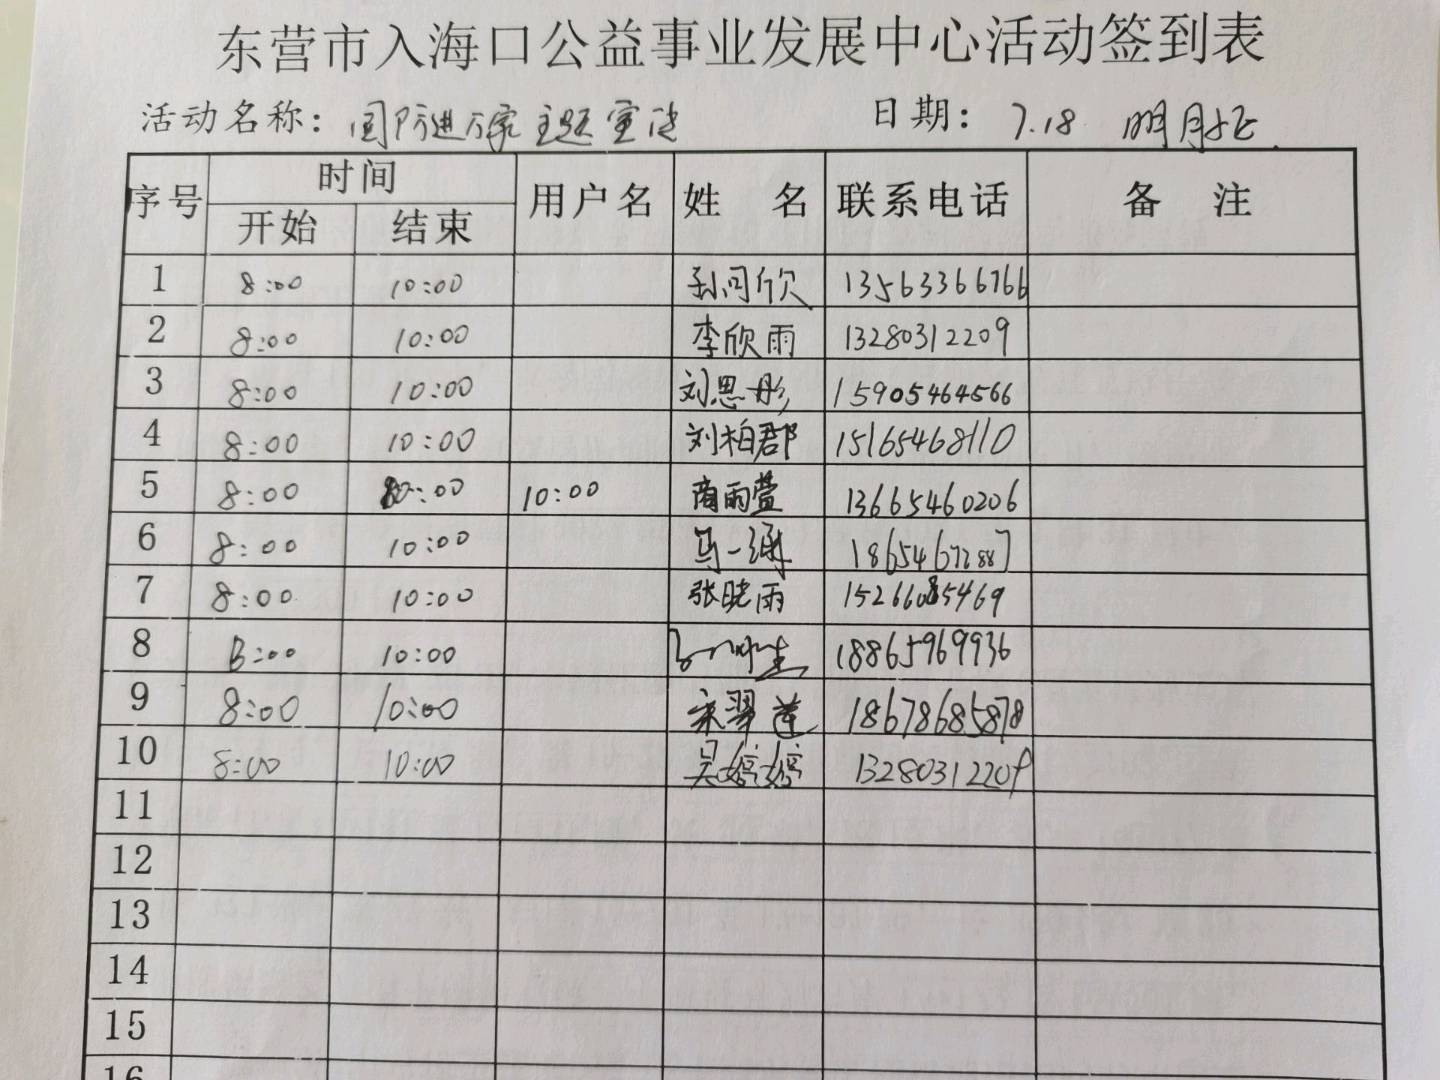 东营市入海口公益事业发展中心活动签到表
活动名称： 国防进万家主题宣传 日期： 7.18 明月社区
序号 时间 用户名 姓 名 联系电话 备 注
开始 结束
1 8:00 10:00 孙同欣 13563366766
2 8:00 10:00 李欣雨 13280312209
3 8:00 10:00 刘思彤 15905464566
4 8:00 10:00 刘柏郡 15165468110
5 8:00 10:00 商雨萱 13665460206
6 8:00 10:00 马一涵 18654672887
7 8:00 10:00 张晓雨 15266085469
8 8:00 10:00 18865969936
9 8:00 10:00 宋翠莲 18678685878
10 8:00 10:00 吴婷婷 13280312209
11
12
13
14
15
16